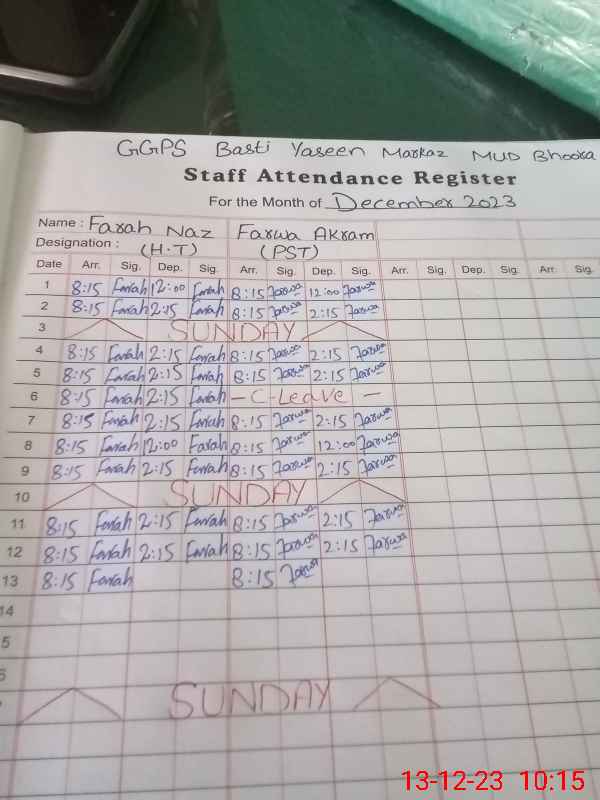 GGPS Basti Yaseen Markaz MUD Bhooka
Staff Attendance Register
For the Month of December 2023
Name : Farah Naz Farwa Akram
Designation : (H.T) (PST)
Date Arr. Sig. Dep. Sig. Arr. Sig. Dep. Sig. Arr. Sig. Dep. Sig. Arr. Sig.
1 8:15 Farah 12:00 Farah 8:15 Farwa 12:00 Farwa
2 8:15 Farah 2:15 Farah 8:15 Farwa 2:15 Farwa
3 SUNDAY
4 8:15 Farah 2:15 Farah 8:15 Farwa 2:15 Farwa
5 8:15 Farah 2:15 Farah 8:15 Farwa 2:15 Farwa
6 8:15 Farah 2:15 Farah - C-Leave -
7 8:15 Farah 2:15 Farah 8:15 Farwa 2:15 Farwa
8 8:15 Farah 12:00 Farah 8:15 Farwa 12:00 Farwa
9 8:15 Farah 2:15 Farah 8:15 Farwa 2:15 Farwa
10 SUNDAY
11 8:15 Farah 2:15 Farah 8:15 Farwa 2:15 Farwa
12 8:15 Farah 2:15 Farah 8:15 Farwa 2:15 Farwa
13 8:15 Farah 8:15 Farwa
14
5
6
SUNDAY
13-12-23 10:15